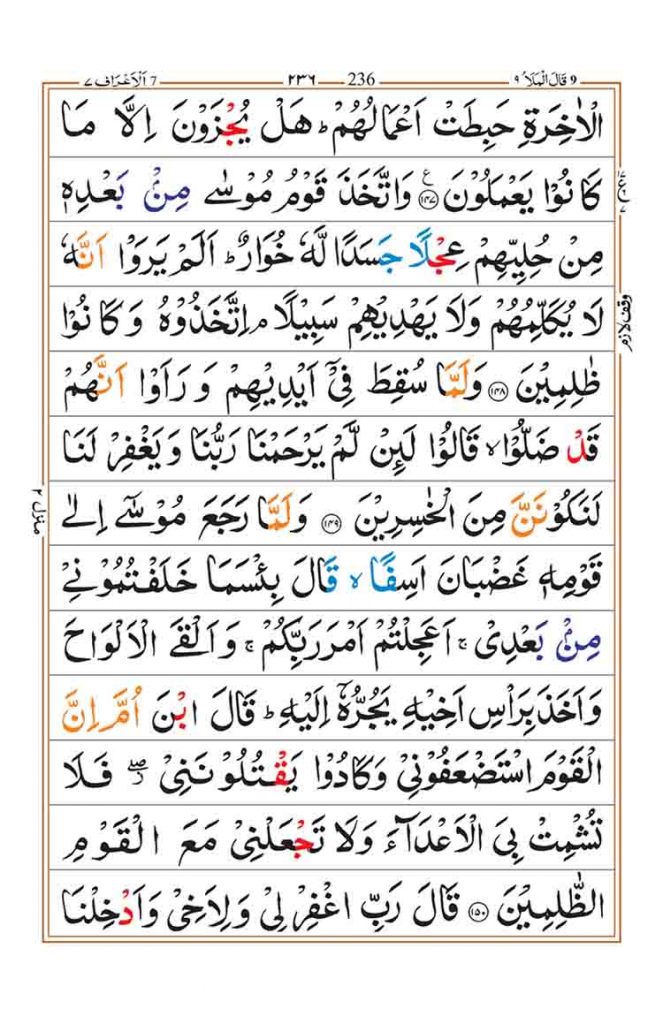 ٩ قَالَ الْمَلَاُ 9 236 ٢٣٦ 7 اَلْاَعْرَاف ٧
الْاٰخِرَةِ حَبِطَتْ اَعْمَالُهُمْ ؕ هَلْ يُجْزَوْنَ اِلَّا مَا
كَانُوْا يَعْمَلُوْنَ ﴿۱۴۷﴾ وَاتَّخَذَ قَوْمُ مُوْسٰى مِنْۢ بَعْدِهٖ
مِنْ حُلِيِّهِمْ عِجْلًا جَسَدًا لَّهٗ خُوَارٌ ؕ اَلَمْ يَرَوْا اَنَّهٗ
لَا يُكَلِّمُهُمْ وَلَا يَهْدِيْهِمْ سَبِيْلًا ۘ اِتَّخَذُوْهُ وَكَانُوْا
وقف لازم
ظٰلِمِيْنَ ﴿۱۴۸﴾ وَلَمَّا سُقِطَ فِىْۤ اَيْدِيْهِمْ وَرَاَوْا اَنَّهُمْ
قَدْ ضَلُّوْا ۙ قَالُوْا لَئِنْ لَّمْ يَرْحَمْنَا رَبُّنَا وَيَغْفِرْ لَنَا
لَنَكُوْنَنَّ مِنَ الْخٰسِرِيْنَ ﴿۱۴۹﴾ وَلَمَّا رَجَعَ مُوْسٰٓى اِلٰى
منزل ٢
قَوْمِهٖ غَضْبَانَ اَسِفًا ۙ قَالَ بِئْسَمَا خَلَفْتُمُوْنِىْ
مِنْۢ بَعْدِىْ ۚ اَعَجِلْتُمْ اَمْرَ رَبِّكُمْ ۚ وَاَلْقَى الْاَلْوَاحَ
وَاَخَذَ بِرَاْسِ اَخِيْهِ يَجُرُّهٗۤ اِلَيْهِ ؕ قَالَ ابْنَ اُمَّ اِنَّ
الْقَوْمَ اسْتَضْعَفُوْنِىْ وَكَادُوْا يَقْتُلُوْنَنِىْ ۖ فَلَا
تُشْمِتْ بِىَ الْاَعْدَآءَ وَلَا تَجْعَلْنِىْ مَعَ الْقَوْمِ
الظّٰلِمِيْنَ ﴿۱۵۰﴾ قَالَ رَبِّ اغْفِرْ لِىْ وَلِاَخِىْ وَاَدْخِلْنَا